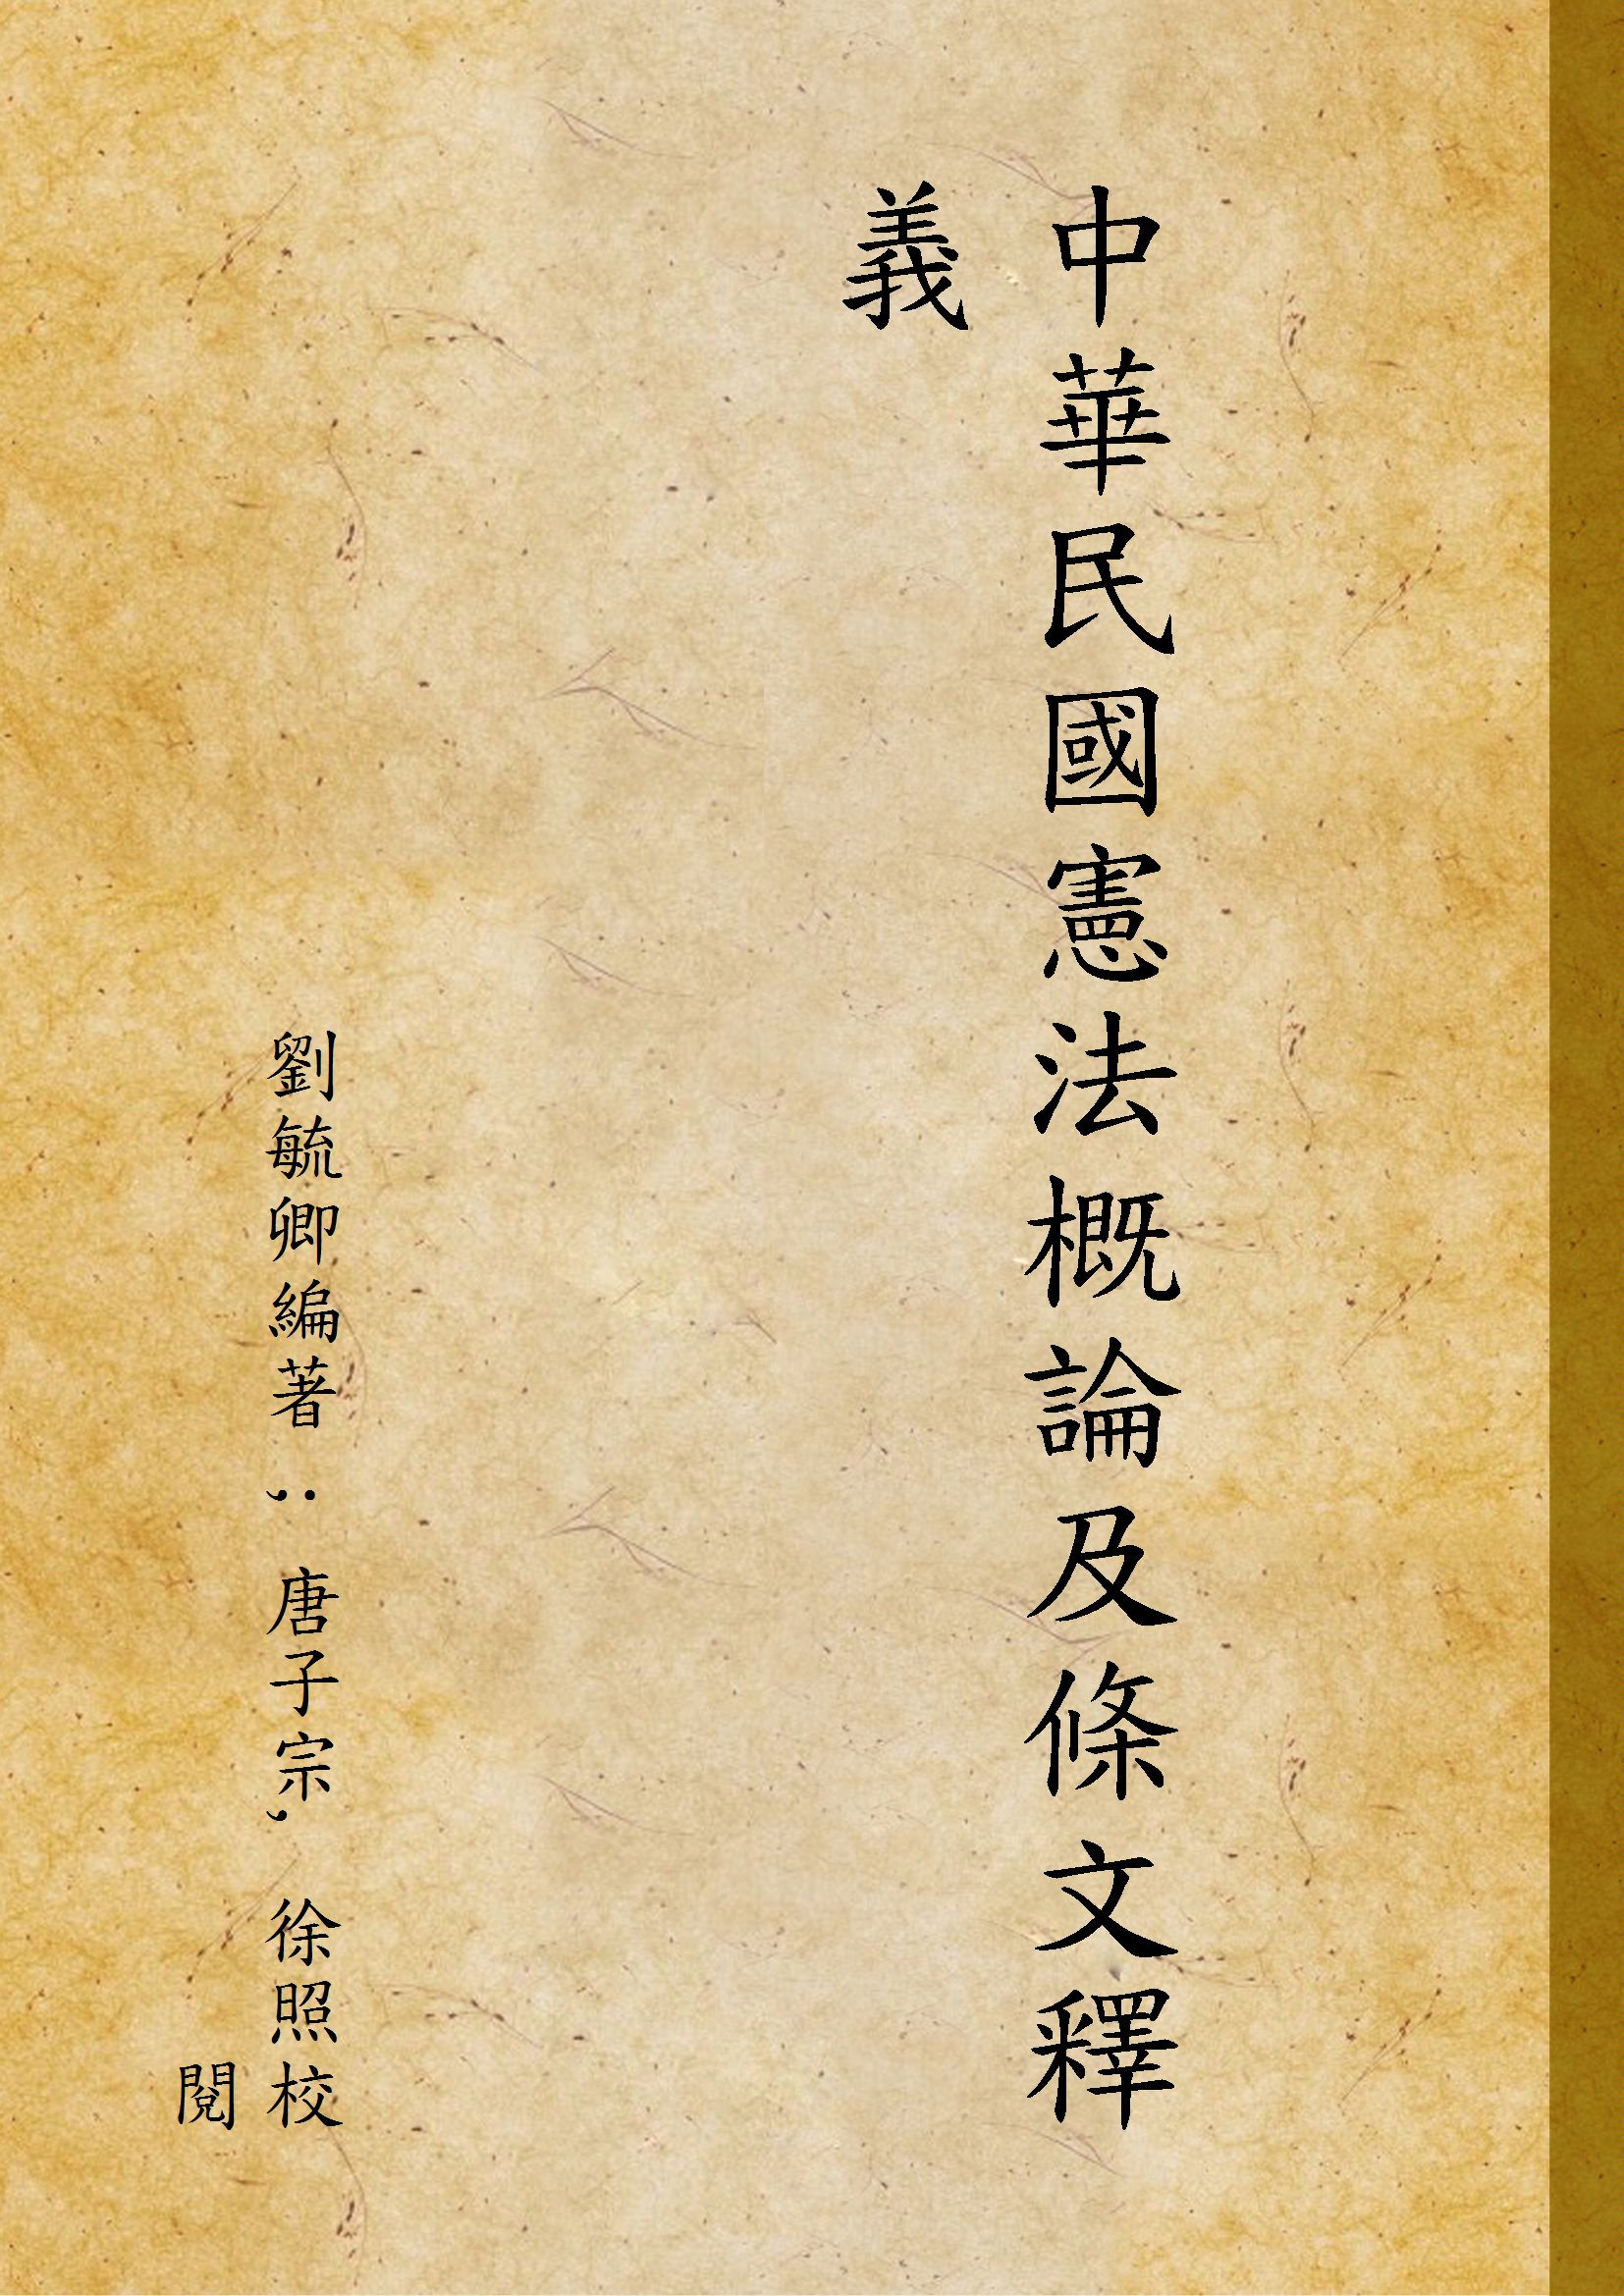 中華民國憲法概論及條文釋
義
劉毓卿編著 ; 唐子宗, 徐照校
閱